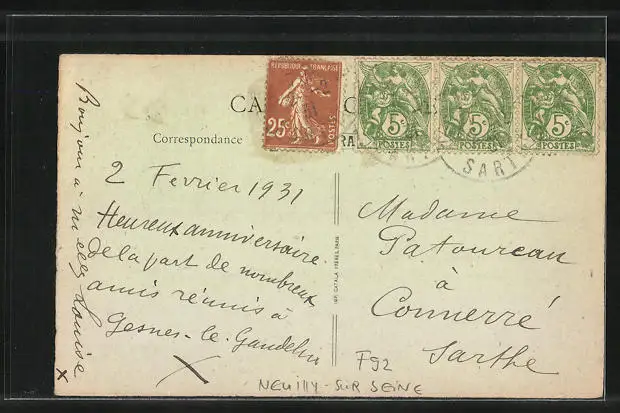 RÉPUBLIQUE FRANÇAISE
25c
POSTES
5c
POSTES
5c
POSTES
5c
POSTES
SART
Correspondance
2 Fevrier 1931
Heureux anniversaire
de la part de nombreux
amis réunis à
Gesnes-le-Gandelin
X
Bonjour à Melle Louise
X
IMP. CATALA FRÈRES, PARIS
Madame
Patoureau
à
Connerré
Sarthe
F92
NEUILLY-SUR SEINE